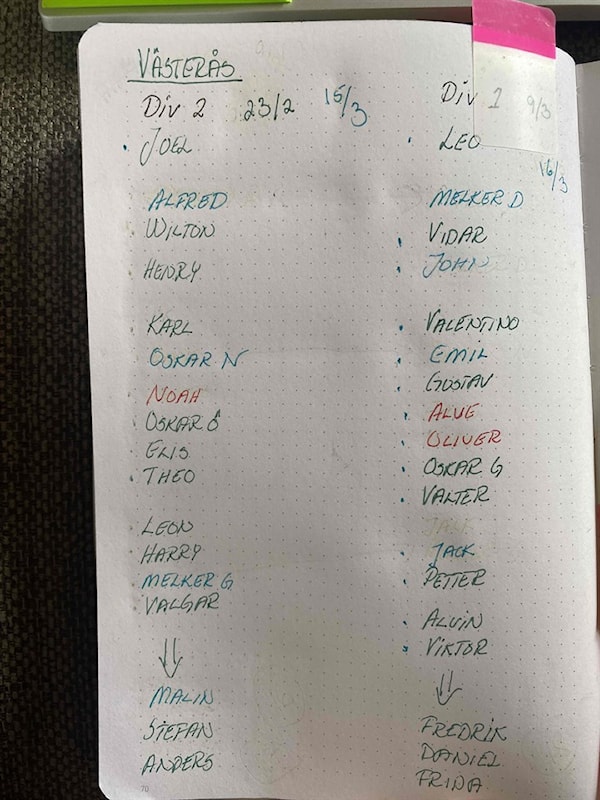 VÄSTERÅS
Div 2 23/2 15/3
JOEL
ALFRED
WILTON
HENRY
KARL
OSKAR N
NOAH
OSKAR Ö
ELIS
THEO
LEON
HARRY
MELKER G
VALGAR
MALIN
STEFAN
ANDERS
70
Div 1 9/3
LEO
16/3
MELKER D
VIDAR
JOHN
VALENTINO
EMIL
GUSTAV
ALVE
OLIVER
OSKAR G
VALTER
JACK
PETTER
ALVIN
VIKTOR
FREDRIK
DANIEL
FRIDA